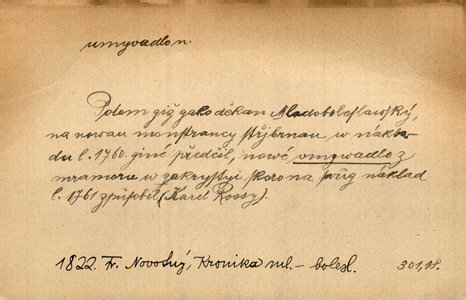 umyvadlo n.
Potom giž gako děkan Mladoboleslawský,
na nowau monstrancy střjbrnau w nákla-
du l. 1760 giné předčil, nowé vmywadlo z
mramoru w zakrystyi skoro na swůg náklad
l. 1761 způsobil (Karel Rossy).
1822. Fr. Novotný, Kronika ml.– bolesl. 301,18.